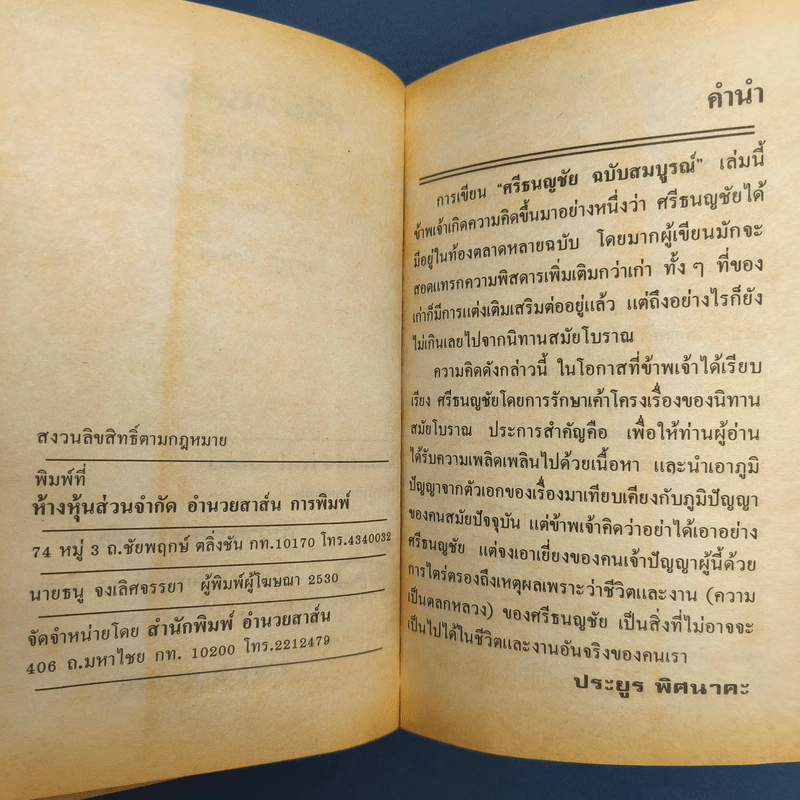 สงวนลิขสิทธิ์ตามกฎหมาย
พิมพ์ที่
ห้างหุ้นส่วนจำกัด อำนวยสาส์น การพิมพ์
74 หมู่ 3 ถ.ชัยพฤกษ์ ตลิ่งชัน กท.10170 โทร.4340032
นายธนู จงเลิศจรรยา ผู้พิมพ์ผู้โฆษณา 2530
จัดจำหน่ายโดย สำนักพิมพ์ อำนวยสาส์น
406 ถ.มหาไชย กท. 10200 โทร.2212479
คำนำ
การเขียน “ศรีธนญชัย ฉบับสมบูรณ์” เล่มนี้
ข้าพเจ้าเกิดความคิดขึ้นมาอย่างหนึ่งว่า ศรีธนญชัยได้
มีอยู่ในท้องตลาดหลายฉบับ โดยมากผู้เขียนมักจะ
สอดแทรกความพิสดารเพิ่มเติมกว่าเก่า ทั้ง ๆ ที่ของ
เก่าก็มีการแต่งเติมเสริมต่ออยู่แล้ว แต่ถึงอย่างไรก็ยัง
ไม่เกินเลยไปจากนิทานสมัยโบราณ
ความคิดดังกล่าวนี้ ในโอกาสที่ข้าพเจ้าได้เรียบ
เรียง ศรีธนญชัยโดยการรักษาเค้าโครงเรื่องของนิทาน
สมัยโบราณ ประการสำคัญคือ เพื่อให้ท่านผู้อ่าน
ได้รับความเพลิดเพลินไปด้วยเนื้อหา และนำเอาภูมิ
ปัญญาจากตัวเอกของเรื่องมาเทียบเคียงกับภูมิปัญญา
ของคนสมัยปัจจุบัน แต่ข้าพเจ้าคิดว่าอย่าได้เอาอย่าง
ศรีธนญชัย แต่จงเอาเยี่ยงของคนเจ้าปัญญาผู้นี้ด้วย
การไตร่ตรองถึงเหตุผลเพราะว่าชีวิตและงาน (ความ
เป็นตลกหลวง) ของศรีธนญชัย เป็นสิ่งที่ไม่อาจจะ
เป็นไปได้ในชีวิตและงานอันจริงของคนเรา
ประยูร พิศนาคะ